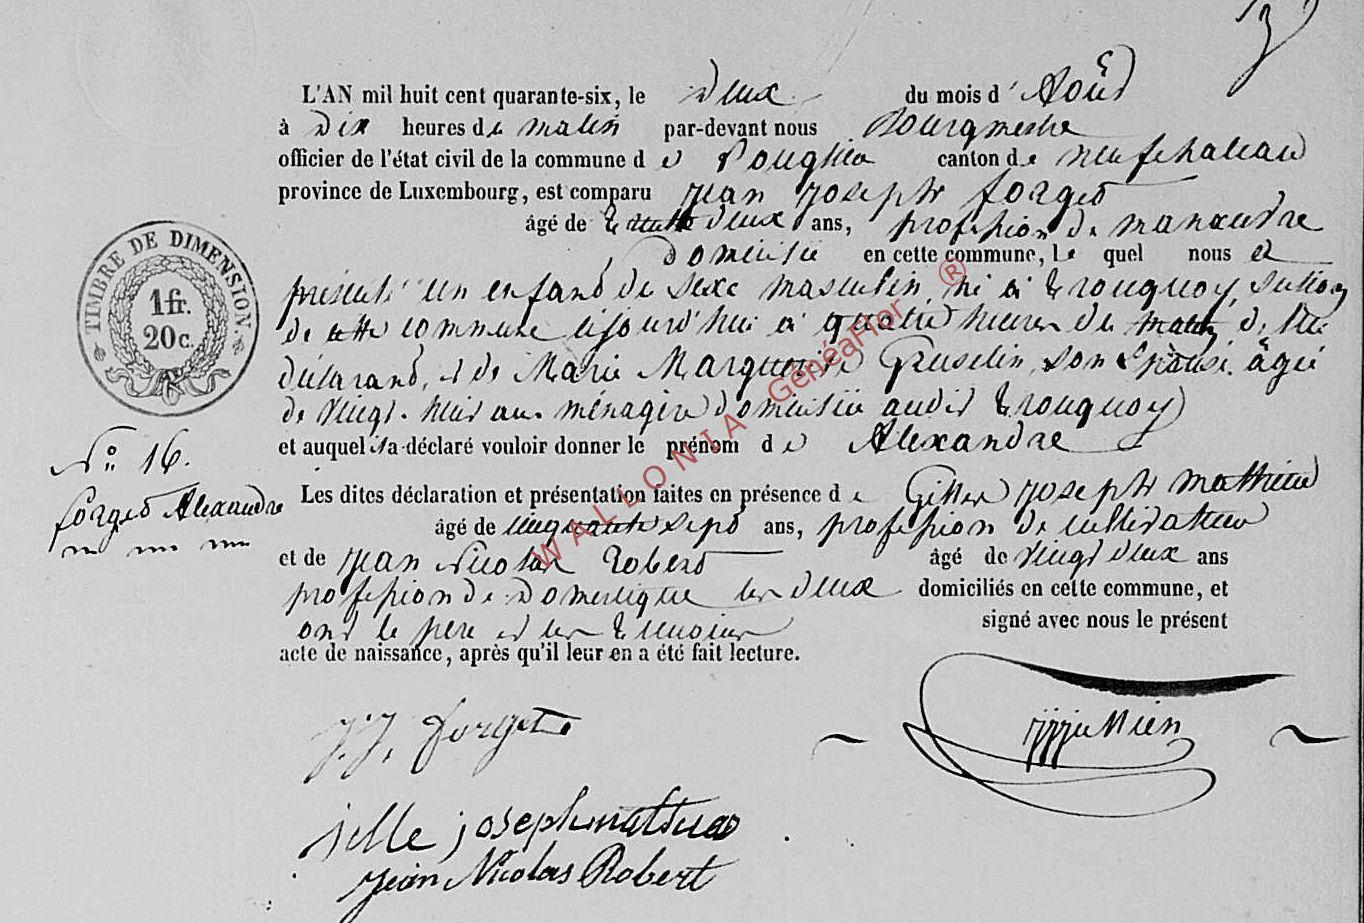 L'AN mil huit cent quarante-six, le deux du mois d' Aoûd
à Dix heures de matin par-devant nous Bourgmestre
officier de l'état civil de la commune d e canton de neufchateau
province de Luxembourg, est comparu jean joseph forged
âgé de trente deux ans, profession de manœuvre
Domicilié en cette commune, le quel nous a
présenté un enfand de sexe masculin, né à Trouquoy, section
de cette commune aujourd'hui à quatre heures du matin de lui
déclarand, et de Marie Marguerite son Epouse, âgée
de vingt-huit ans ménagère domicilié audit Trouquoy
et auquel il a déclaré vouloir donner le prénom d e Alexandre
N° 16.
forged Alexandre
Les dites déclaration et présentation faites en présence d e joseph mathieu
âgé de cinquante sept ans, profession de cultivateur
et de jean Nicolas Roberd âgé de vingt deux ans
profession de Domestique les deux domiciliés en cette commune, et
ond le père et les témoins signé avec nous le présent
acte de naissance, après qu'il leur en a été fait lecture.
j.j. forget
jille joseph mathieu
jean Nicolas Robert
TIMBRE DE DIMENSION.
1 fr.
20 c.
WALLONIA GénéaFlor ®